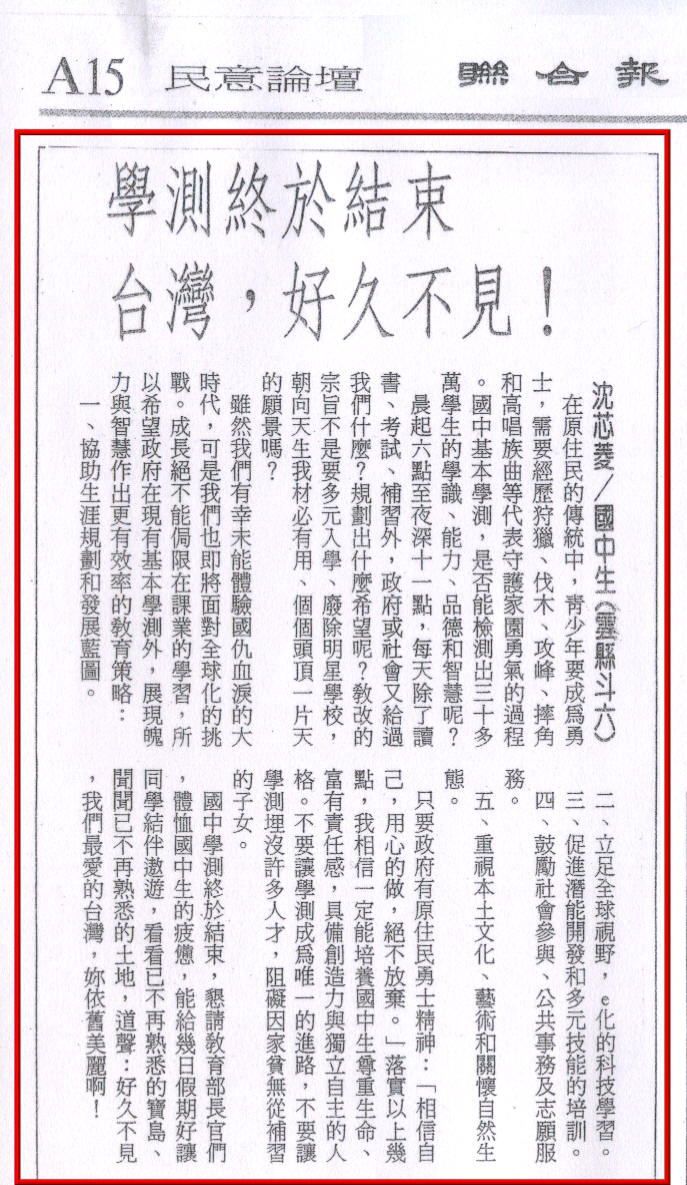 A15 民意論壇 聯合報
學測終於結束
台灣，好久不見！
沈芯菱／國中生（雲縣斗六）
在原住民的傳統中，青少年要成爲勇
士，需要經歷狩獵、伐木、攻峰、摔角
和高唱族曲等代表守護家園勇氣的過程
。國中基本學測，是否能檢測出三十多
萬學生的學識、能力、品德和智慧呢？
晨起六點至夜深十一點，每天除了讀
書、考試、補習外，政府或社會又給過
我們什麼？規劃出什麼希望呢？教改的
宗旨不是要多元入學、廢除明星學校，
朝向天生我材必有用、個個頭頂一片天
的願景嗎？
雖然我們有幸未能體驗國仇血淚的大
時代，可是我們也即將面對全球化的挑
戰。成長絕不能侷限在課業的學習，所
以希望政府在現有基本學測外，展現魄
力與智慧作出更有效率的教育策略：
一、協助生涯規劃和發展藍圖。
二、立足全球視野，e化的科技學習。
三、促進潛能開發和多元技能的培訓。
四、鼓勵社會參與、公共事務及志願服
務。
五、重視本土文化、藝術和關懷自然生
態。
只要政府有原住民勇士精神：「相信自
己，用心的做，絕不放棄。」落實以上幾
點，我相信一定能培養國中生尊重生命、
富有責任感，具備創造力與獨立自主的人
格。不要讓學測成爲唯一的進路，不要讓
學測埋沒許多人才，阻礙因家貧無從補習
的子女。
國中學測終於結束，懇請教育部長官們
，體恤國中生的疲憊，能給幾日假期好讓
同學結伴遨遊，看看已不再熟悉的寶島、
聞聞已不再熟悉的土地，道聲：好久不見
，我們最愛的台灣，妳依舊美麗啊！